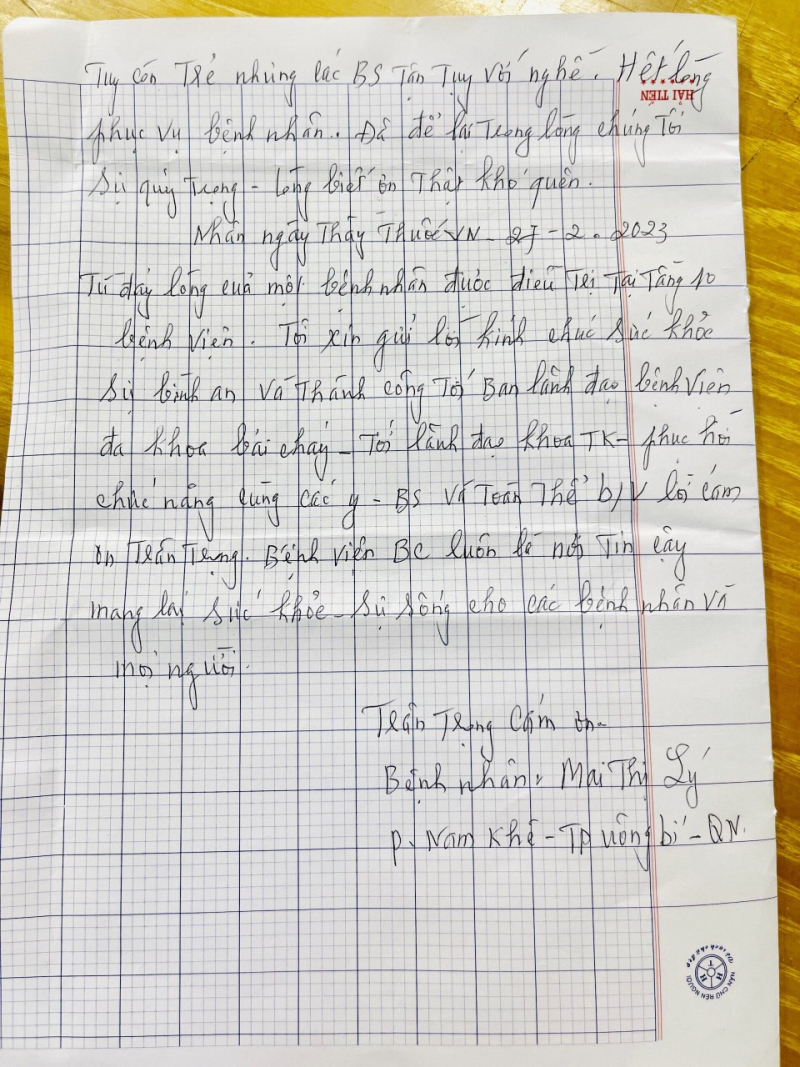 Tuy còn Trẻ nhưng các BS Tận Tụy với nghề. Hết lòng
HẢI TIẾN
phục vụ bệnh nhân. Đã để lại Trong lòng chúng Tôi
Sự quý Trọng - lòng biết ơn Thật khó quên.
Nhân ngày Thầy Thuốc VN - 27 - 2 - 2023
Từ đáy lòng của một bệnh nhân được điều Trị Tại Tầng 10
bệnh viện. Tôi xin gửi lời kính chúc sức khỏe
Sự bình an và Thành công Tới Ban lãnh đạo bệnh viện
đa khoa bãi cháy - Tới lãnh đạo khoa TK - phục hồi
chức năng cùng các y - BS và Toàn Thể b/v lời cám
ơn Trân Trọng. Bệnh viện BC luôn là nơi Tin cậy
mang lại sức khỏe - sự sống cho các bệnh nhân và
mọi người.
Trân Trọng Cám ơn -
Bệnh nhân: Mai Thị Lý
P. Nam Khê - TP Uông bí - QN.
NẮN CHỮ RÈN NGƯỜI